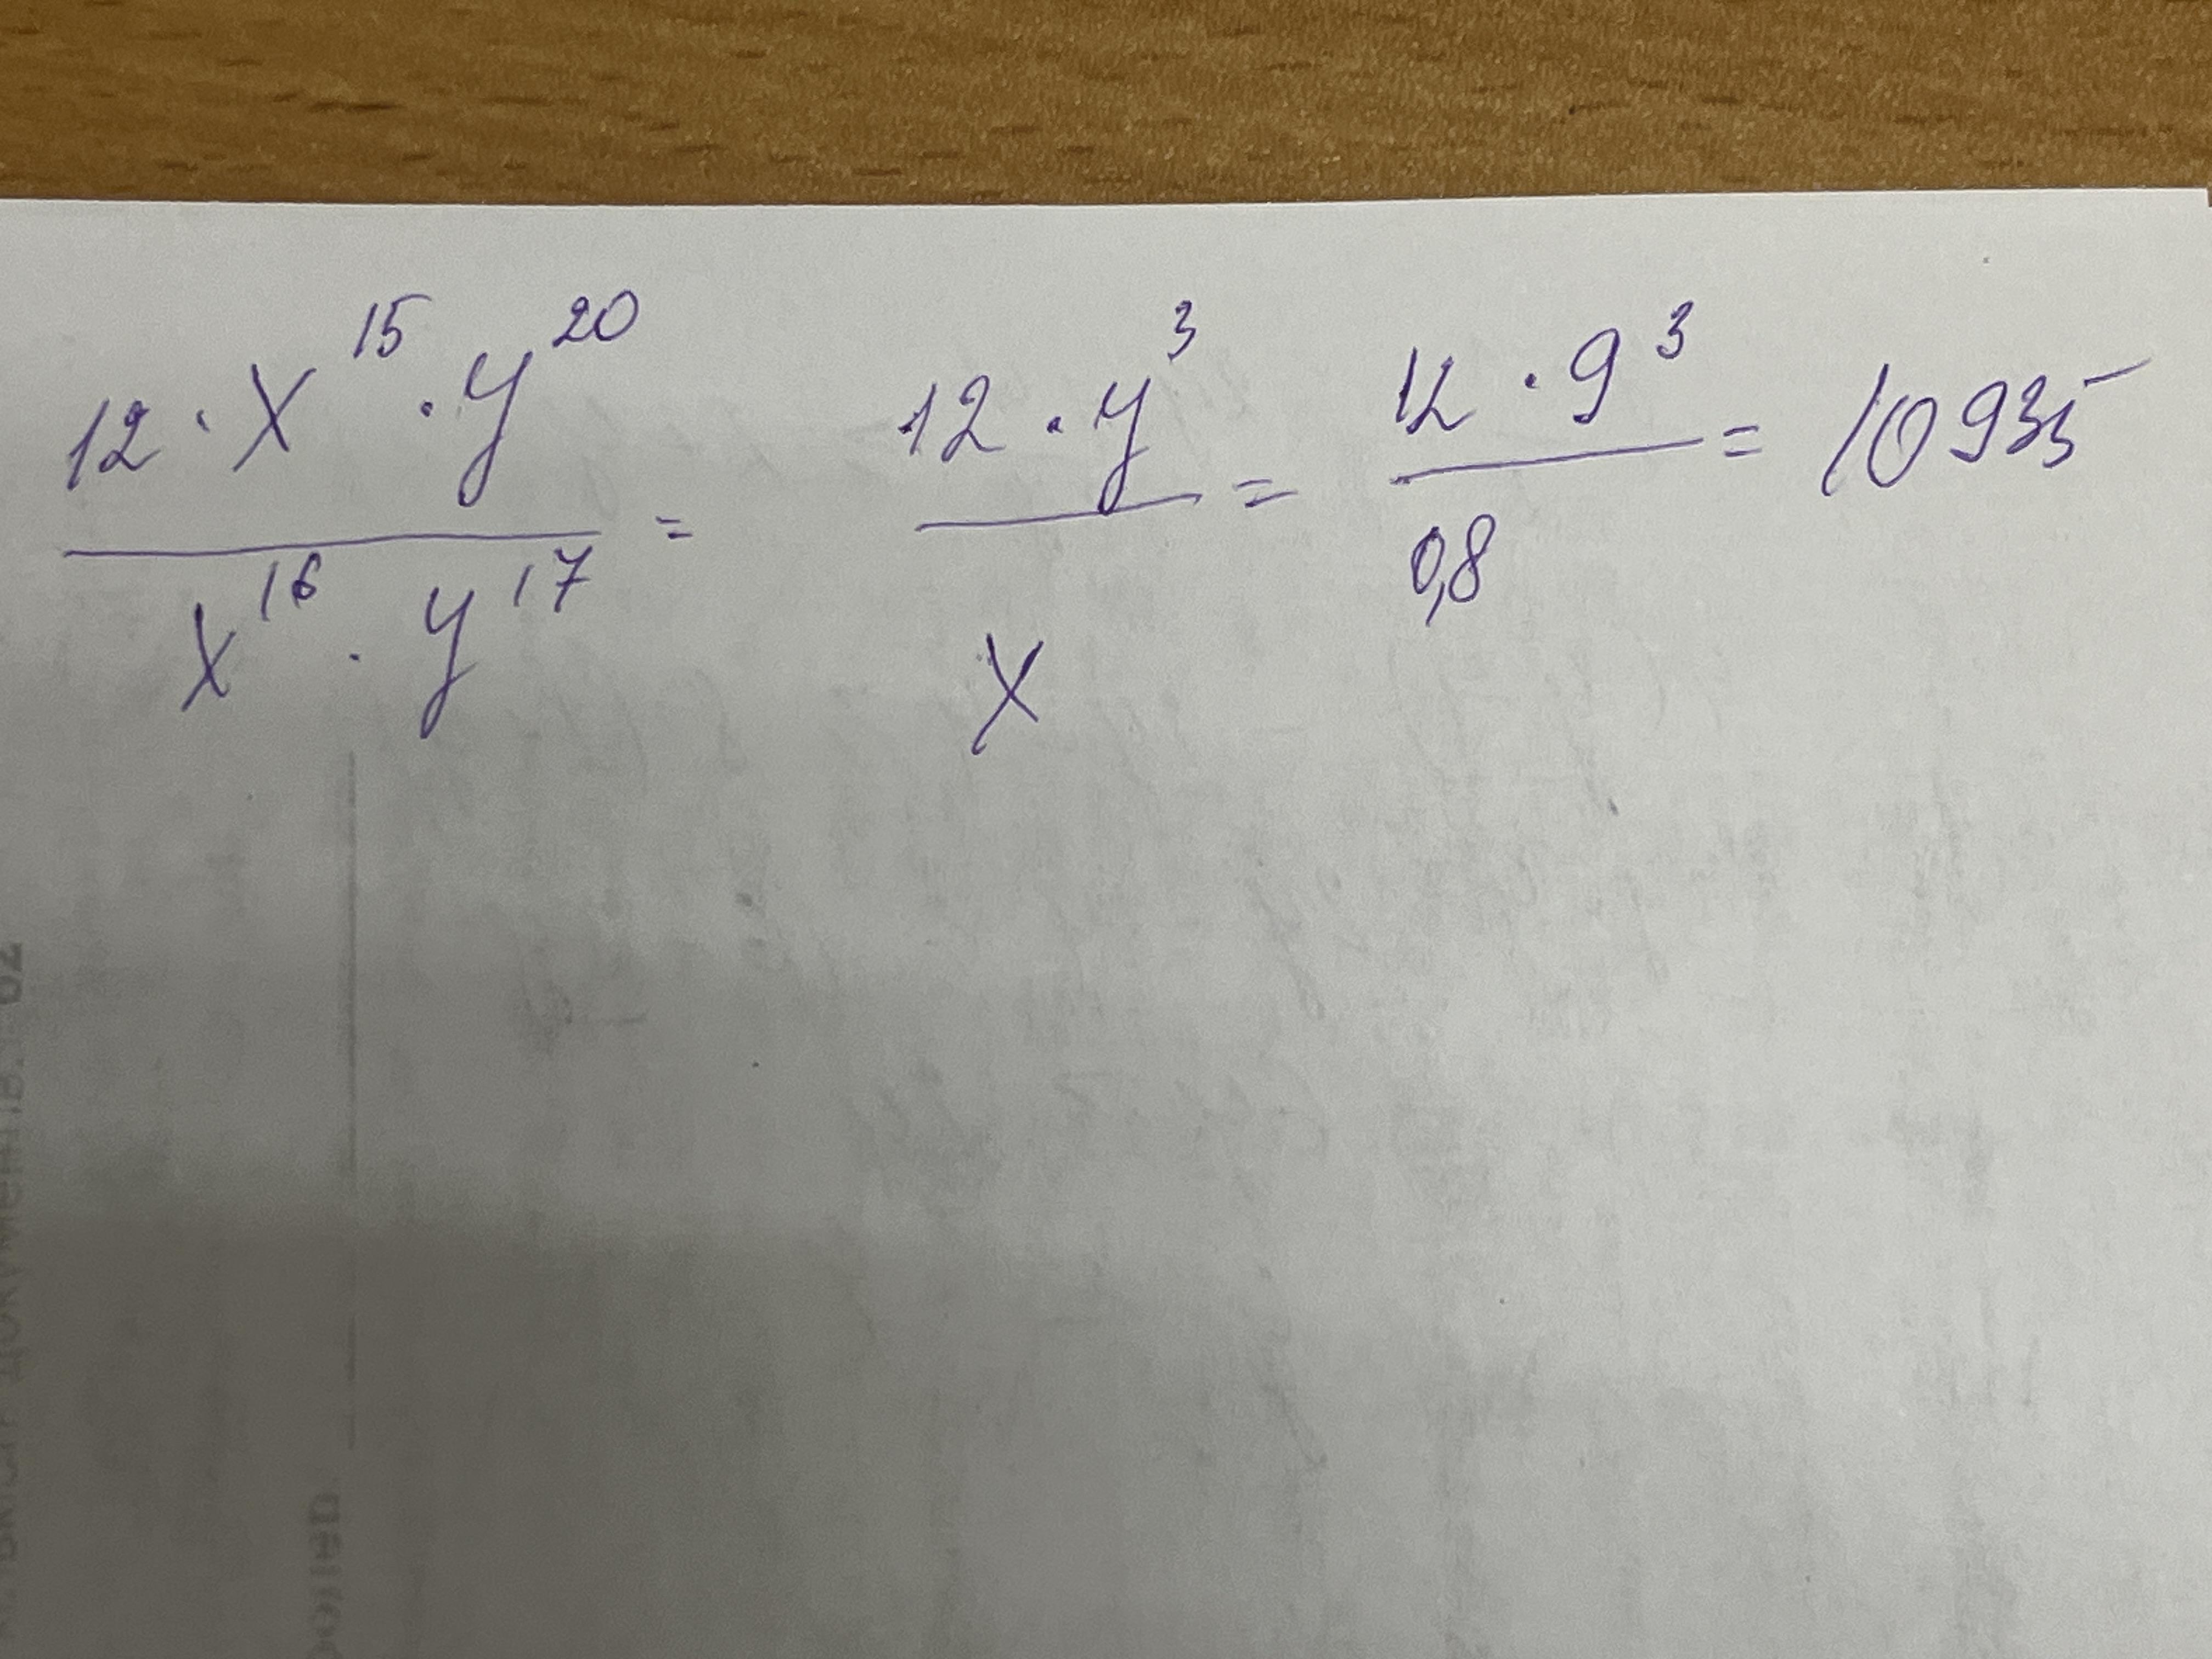 12 · x^15 · y^20 / x^16 · y^17 = 12 · y^3 / x = 12 · 9^3 / 0,8 = 10935